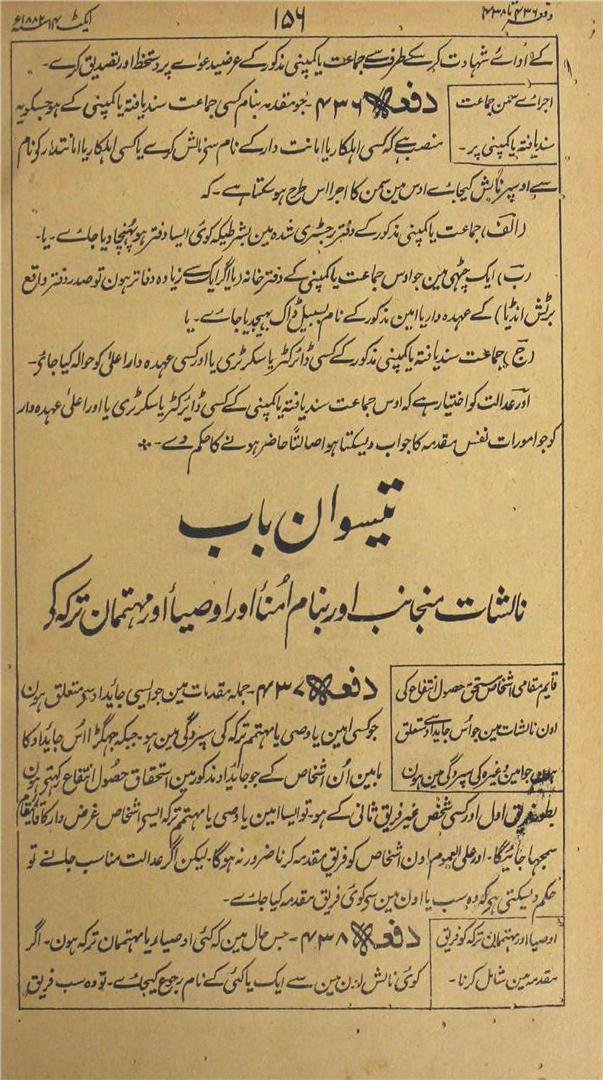 دفعہ ۴۳۶ تا ۴۳۸ ۱۵۶ ایکٹ ۱۴ ۱۸۸۲ء
کے اوائے شہادت کر سکے طرف سے جماعت یا کمپنی مذکور کے عرضیدعوے پر دستخط اور تصدیق کرے۔
اجرائے سمن جماعت
سند یافتہ یا کمپنی پر۔
دفعہ ۴۳۶۔ جو مقدمہ بنام کسی جماعت سند یافتہ یا کمپنی کے ہو جسکو یہ
منصب ہے کہ کسی اہلکار یا امانت دار کے نام سے نالش کرے یا کسی اہلکار یا امانتدار کو نام
سے اوسپر نالش کیجاے اوس مین سمن کا اجرا اس طرح ہو سکتا ہے۔ کہ
(الف) جماعت یا کمپنی مذکور کے دفتر رجسٹری شدہ مین بشرطیکہ کوئی ایسا دفتر ہو پہنچا دیا جاے۔ یا۔
(ب) ایک چٹھی مین جو اوس جماعت یا کمپنی کے دفتر خانہ (یا اگر ایک سے زیادہ دفاتر ہون تو صدر دفتر واقع
برٹش انڈیا) کے عہدہ دار یا امین مذکور کے نام بسبیل ڈاک بھیجدیا جاے۔ یا
(ج) جماعت سند یافتہ یا کمپنی مذکور کے کسی ڈائرکٹر یا سکرٹری یا اور کسی عہدہ دار اعلیٰ کو حوالہ کیا جائے۔
اور عدالت کو اختیار ہے کہ اوس جماعت سند یافتہ یا کمپنی کے کسی ڈائرکٹر یا سکرٹری یا اور اعلیٰ عہدہ دار
کو جو امورات نفس مقدمہ کا جواب دیسکتا ہو اصالتاً حاضر ہونے کا حکم دے۔
تیسوان باب
نالشات منجانب اور بنام اُمنا اور اوصیا اور مہتمان ترکہ کی
قایم مقامی اشخاص مستحق حصول انتفاع کی
اون نالشات مین جو اُس جایداد سے متعلق
ہون جو امین وغیرہ کی سپردگی مین ہون
دفعہ ۴۳۷۔ جملہ مقدمات مین جو ایسی جائداد سے متعلق ہون
جو کسی امین یا وصی یا مہتمم ترکہ کی سپردگی مین ہو۔ جبکہ جھگڑا اُس جایداد کا
مابین اُن اشخاص کے جو جائداد مذکور مین استحقاق حصول انتفاع رکھتے ہون
بطور فریق اول اور کسی شخص غیر فریق ثانی کے ہو۔ تو ایسا امین یا وصی یا مہتمم ترکہ ایسی اشخاص غرض دار کا قایمقام
سمجھا جائیگا۔ اور علی العموم اون اشخاص کو فریق مقدمہ کرنا ضرور نہ ہوگا۔ لیکن اگر عدالت مناسب جانے تو
حکم دیسکتی ہے کہ وہ سب یا اون مین سے کوئی فریق مقدمہ کیا جاے۔
اوصیا اور مہتممان ترکہ کو فریق
مقدمہ مین شامل کرنا۔
دفعہ ۴۳۸۔ جس حال مین کہ کئی اوصیا یا مہتممان ترکہ ہون۔ اگر
کوئی نالش اون مین سے ایک یا کئی کے نام رجوع کیجاے۔ تو وہ سب فریق